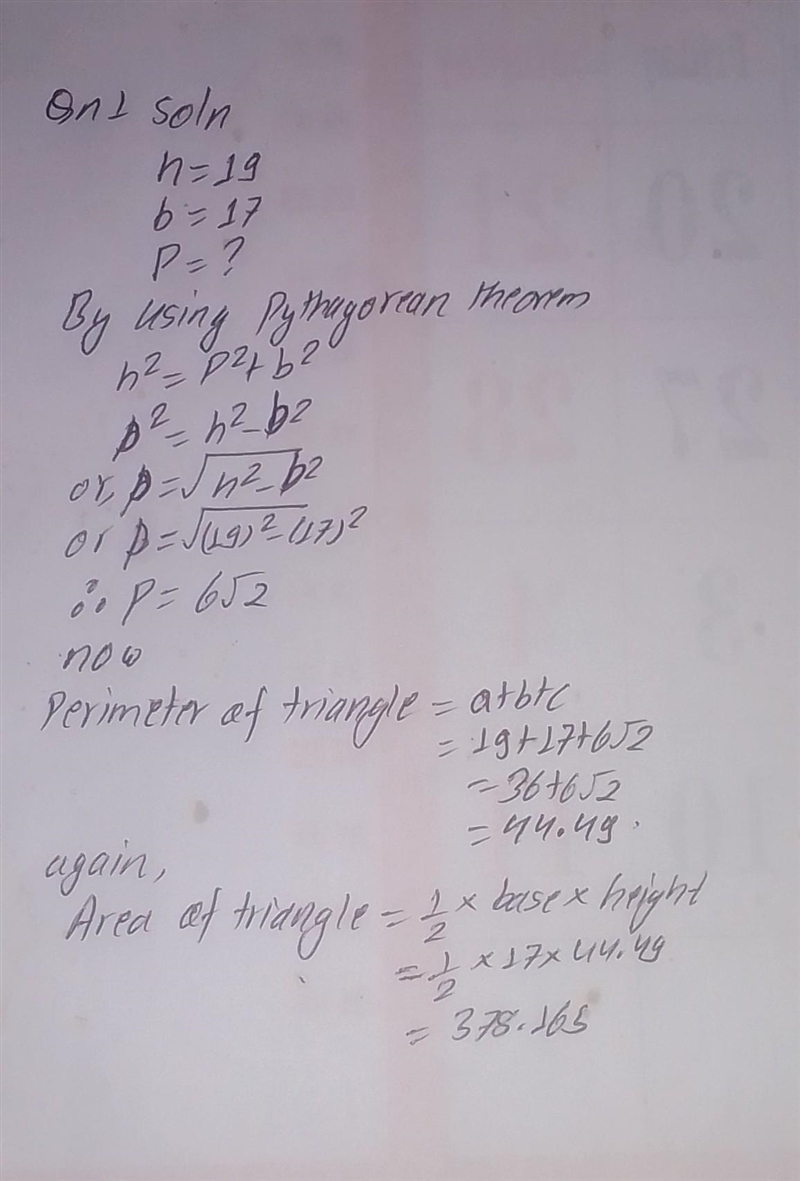 Qn 1 Soln
h=19
b=17
P=?
By using Pythagorean theorem
h²=P²+b²
p²=h²-b²
or, p=√h²-b²
or p=√(19)²-(17)²
∴ P=6√2
now
Perimeter of triangle = a+b+c
= 19+17+6√2
= 36+6√2
= 44.49.
again,
Area of triangle = 1/2 × base × height
= 1/2 × 17 × 44.49
= 378.165